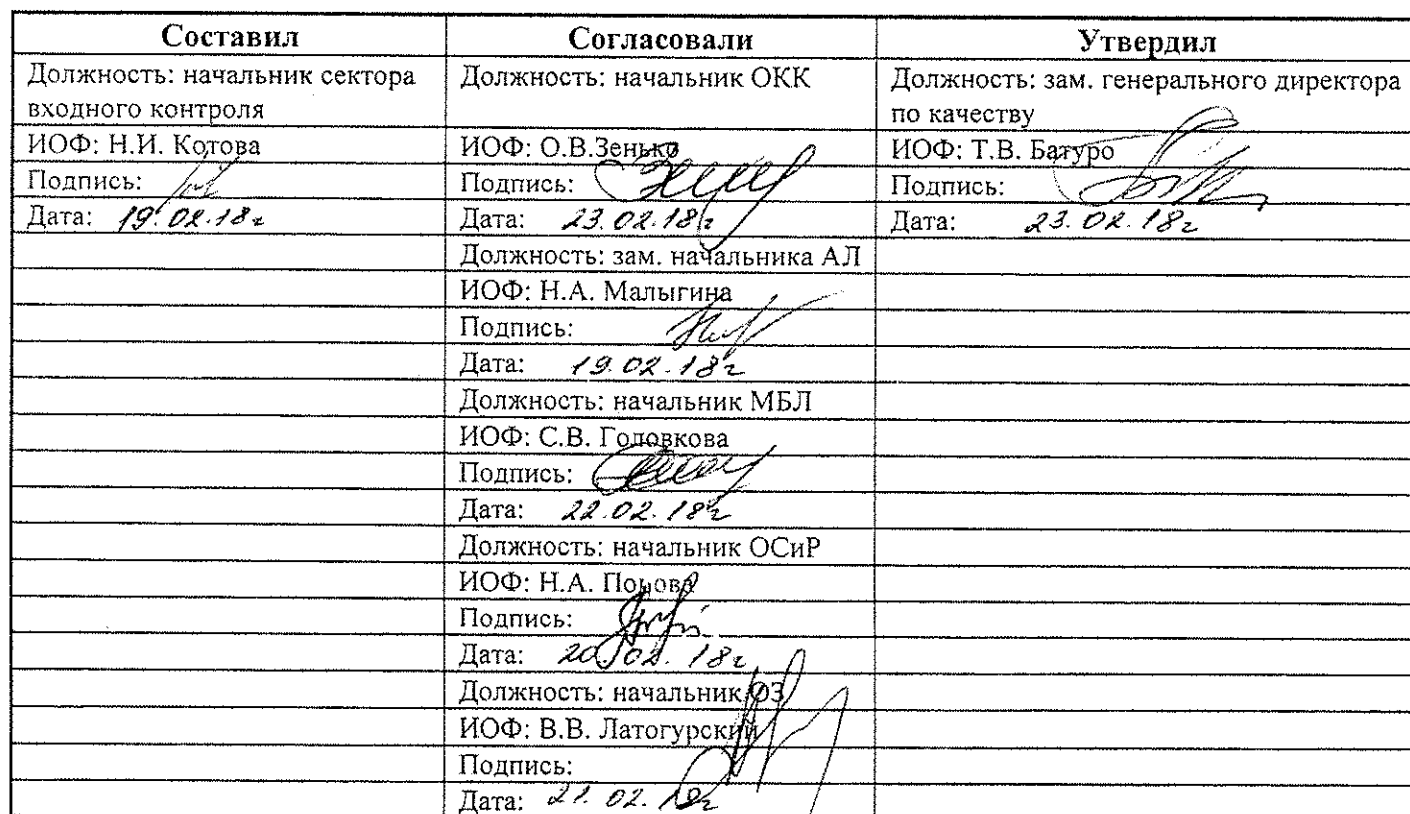 Составил Согласовали Утвердил
Должность: начальник сектора Должность: начальник ОКК Должность: зам. генерального директора
входного контроля по качеству
ИОФ: Н.И. Котова ИОФ: О.В.Зенько ИОФ: Т.В. Батуро
Подпись: Подпись: Подпись:
Дата: 19.02.18г Дата: 23.02.18г Дата: 23.02.18г
Должность: зам. начальника АЛ
ИОФ: Н.А. Малыгина
Подпись:
Дата: 19.02.18г
Должность: начальник МБЛ
ИОФ: С.В. Головкова
Подпись:
Дата: 22.02.18г
Должность: начальник ОСиР
ИОФ: Н.А. Попова
Подпись:
Дата: 20.02.18г
Должность: начальник ОЗ
ИОФ: В.В. Латогурский
Подпись:
Дата: 21.02.18г